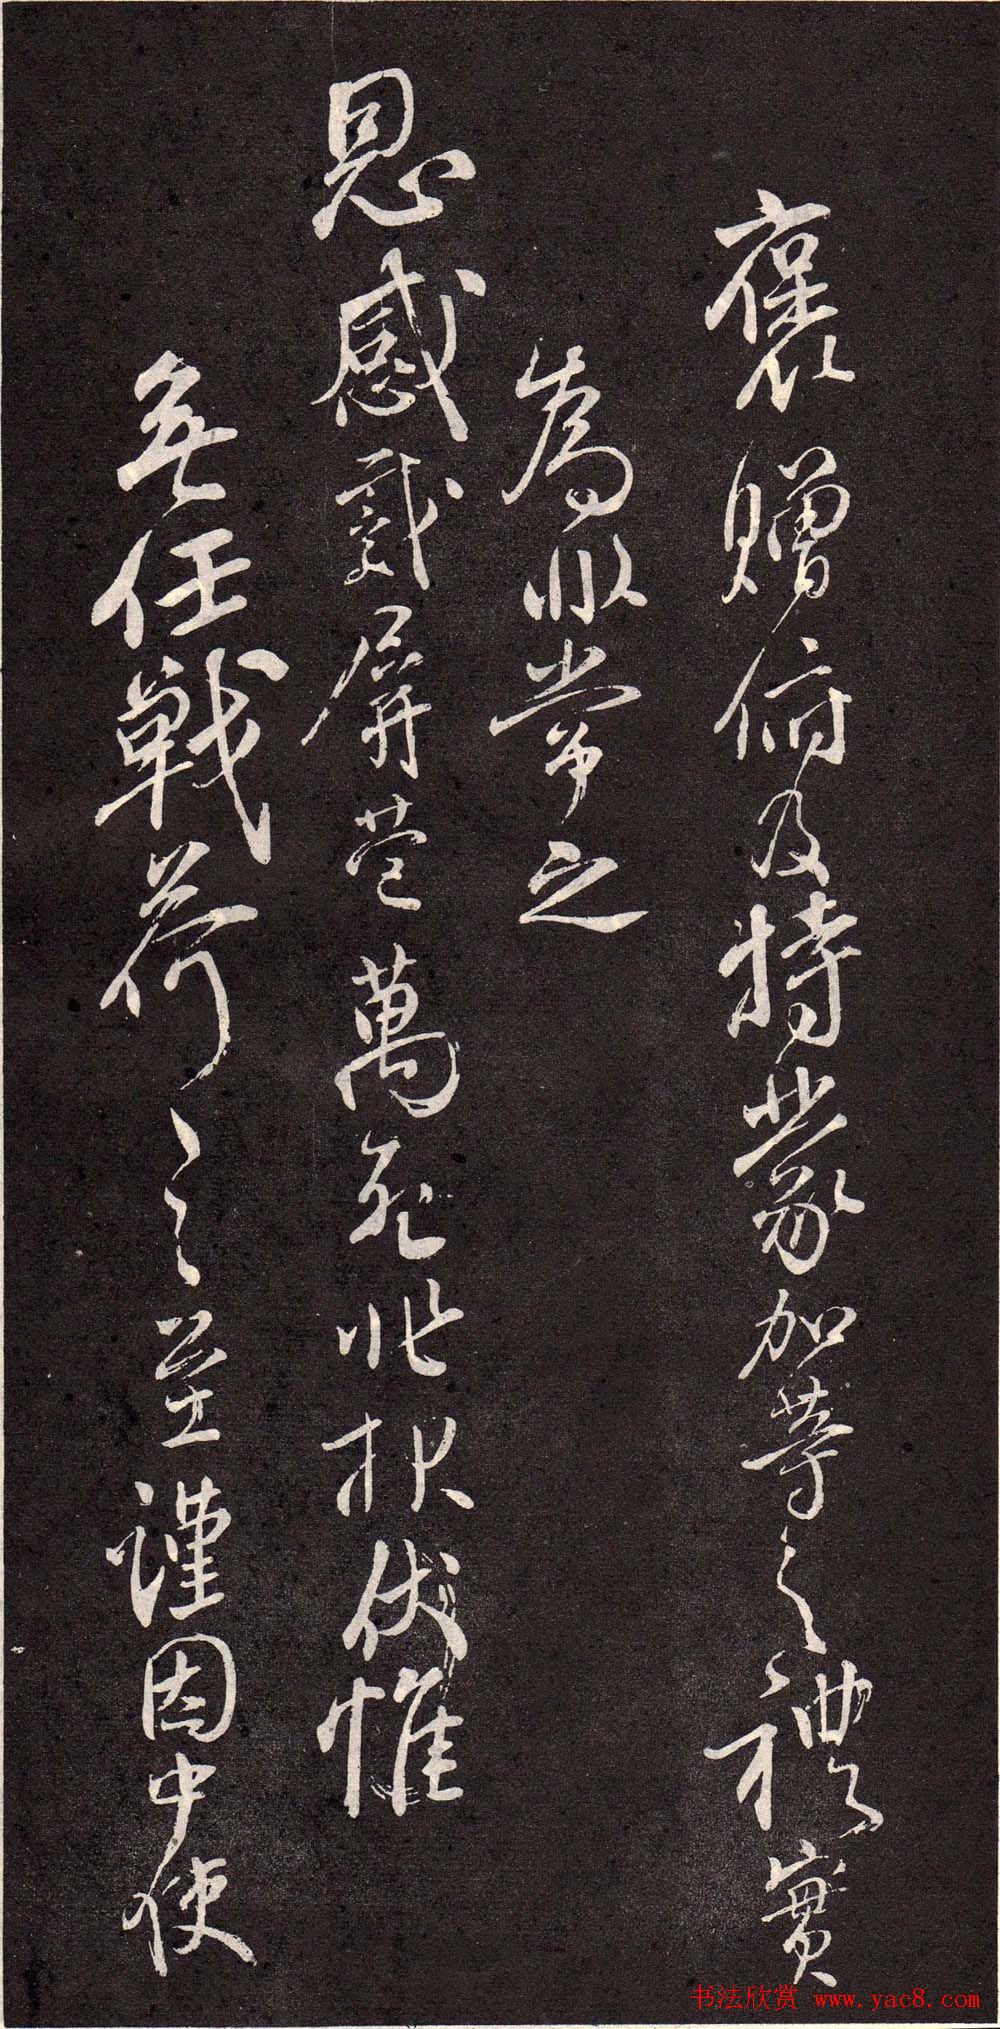 褒贈俯及特蒙加等之禮實
為非常之
恩感戴屏營萬死非报伏惟
無任戰荷之至謹因中使
书法欣赏 www.yac8.com